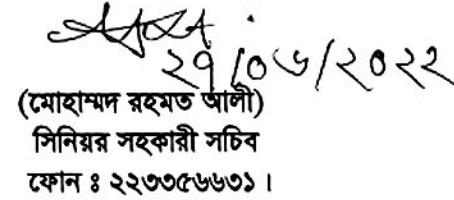 ২৭/০৬/২০২২
(মোহাম্মদ রহমত আলী)
সিনিয়র সহকারী সচিব
ফোন ঃ ২২৩৩৫৬৬৩১ ।